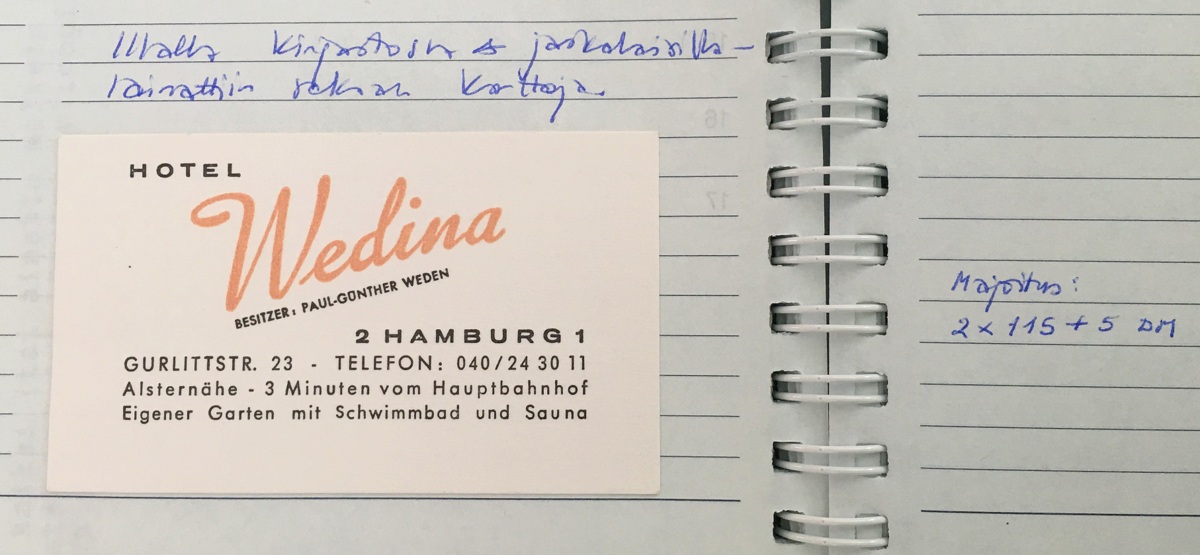 Illalla kirjastossa & jaskalaisilla –
lainattiin seknan karttoja.
HOTEL
Wedina
BESITZER: PAUL-GÜNTHER WEDEN
2 HAMBURG 1
GURLITTSTR. 23 - TELEFON: 040/24 30 11
Alsternähe - 3 Minuten vom Hauptbahnhof
Eigener Garten mit Schwimmbad und Sauna
Majoitus:
2 x 115 + 5 DM